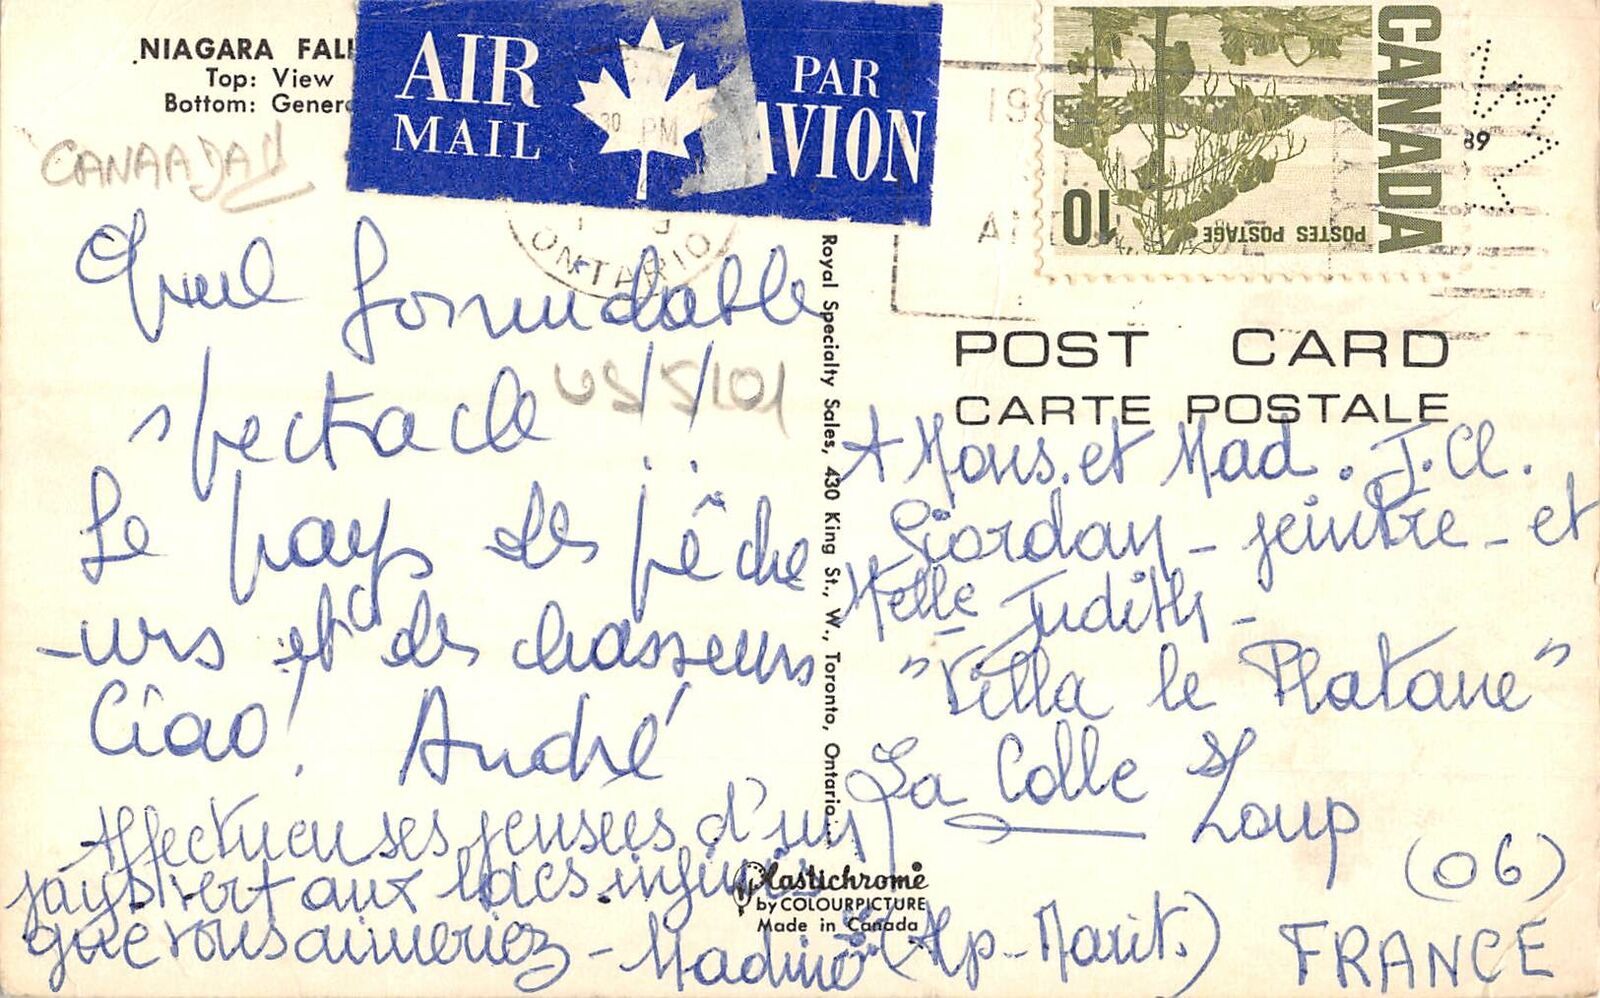 NIAGARA FALL
Top: View
Bottom: Genera
CANAADA
AIR
MAIL
PAR
AVION
30 PM
ONTARIO
CANADA
10
POSTES POSTAGE
89
Quel formidable
spectacle !!
US 5/101
Le pays des pêche
-urs et des chasseurs
Ciao! André
Affectueuses pensées d'un
pays vert aux lacs infinis
que vous aimeriez - Madine
Royal Specialty Sales, 430 King St., W., Toronto, Ontario.
POST CARD
CARTE POSTALE
A Mons. et Mad. J.Cl.
Giordan - peintre - et
Melle Judith -
"Villa le Platane"
La Colle s/ Loup
(06)
(Alp-Marit.) FRANCE
Plastichrome
by COLOURPICTURE
Made in Canada